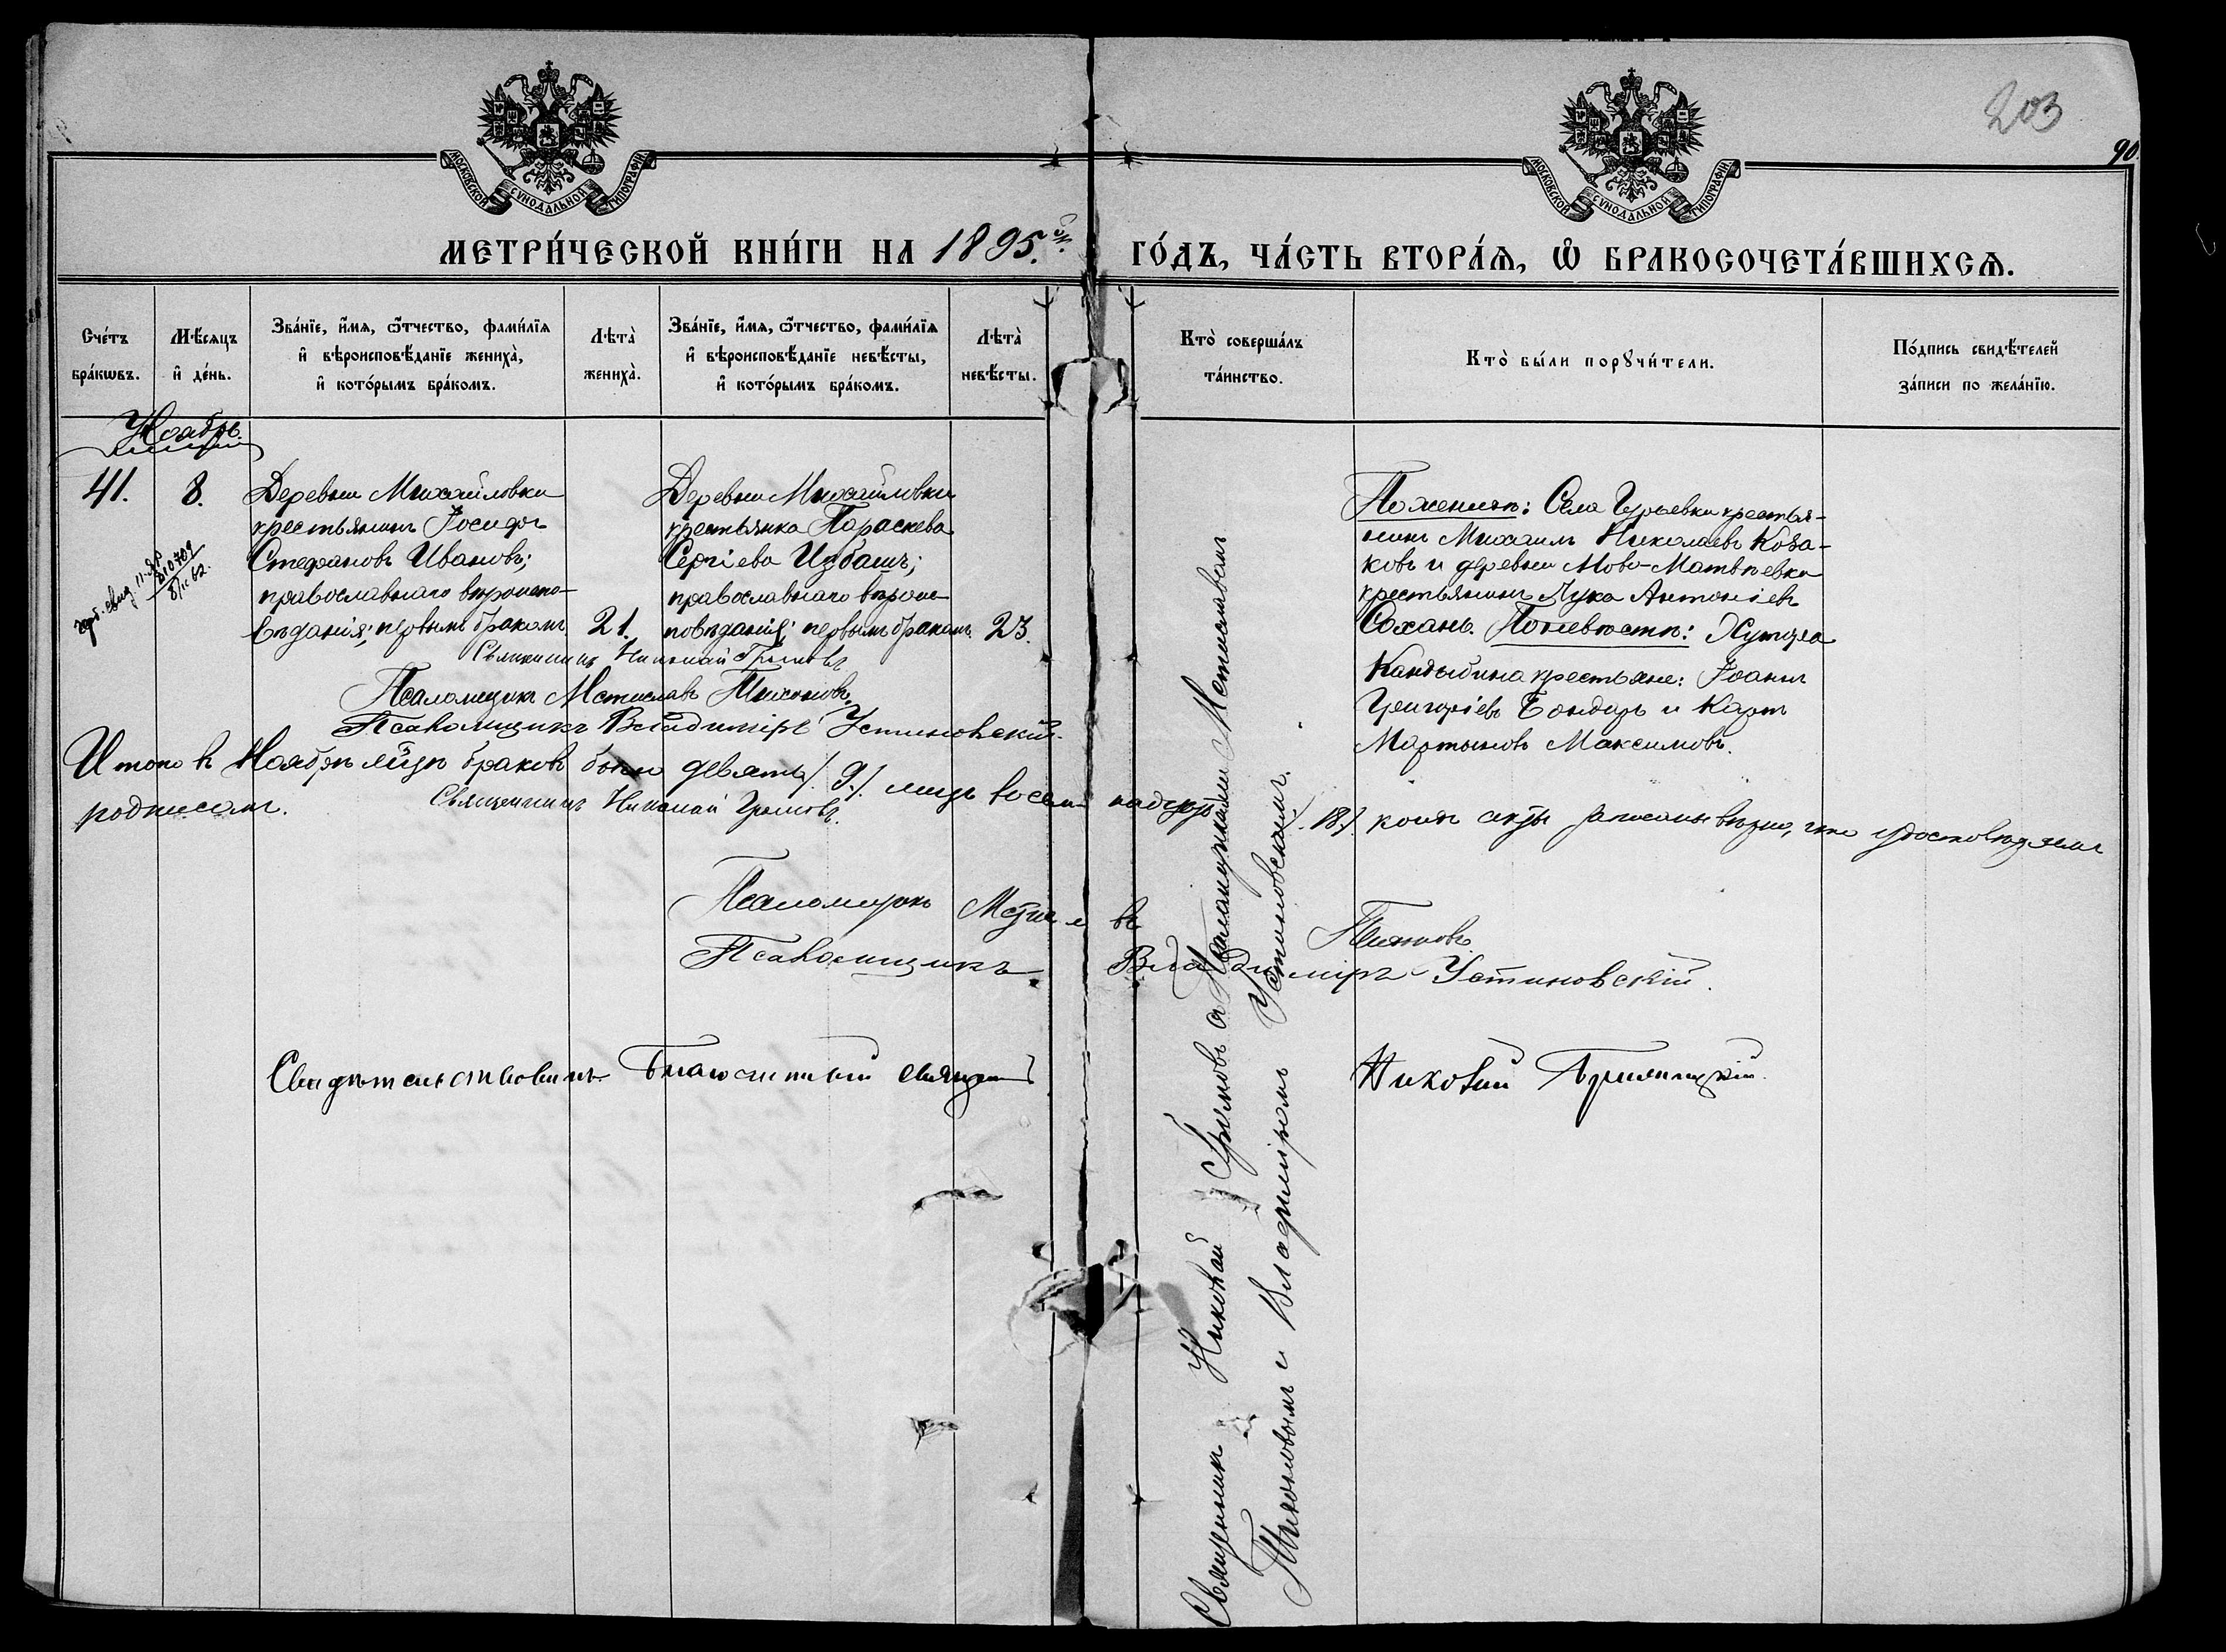 203
90.
МОСКОВСКОЙ СѴНОДАЛЬНОЙ ТИПОГРАФІИ
МОСКОВСКОЙ СѴНОДАЛЬНОЙ ТИПОГРАФІИ
МЕТРИ́ЧЕСКОЙ КНИ́ГИ НА 1895.ый ГО́ДЪ, ЧА́СТЬ ВТОРА́Ѧ, Ѽ БРАКОСОЧЕТА́ВШИХСѦ.
Сче́тъ бра́кѡвъ.
Мѣ́сяцъ и҆ де́нь.
Зва́нїе, и҆́мѧ, ѻ҆́тчество, фами́лїѧ и҆ вѣроисповѣ́данїе жениха̀, и҆ кото́рымъ бра́комъ.
Лѣта̀ жениха̀.
Зва́нїе, и҆́мѧ, ѻ҆́тчество, фами́лїѧ и҆ вѣроисповѣ́данїе невѣ́сты, и҆ кото́рымъ бра́комъ.
Лѣта̀ невѣ́сты.
Кто̀ соверша́лъ та́инство.
Кто̀ бы́ли порꙋчи́тели.
По́дпись свидѣ́телей за́писи по жела́нїю.
Ноябрь.
41.
8.
Деревни Михайловки
крестьянинъ Іосифъ
Стефановъ Ивановъ;
православнаго вѣроиспо-
вѣданія; первымъ бракомъ
21.
Деревни Михайловки
крестьянка Параскева
Сергіева Избашъ;
православнаго вѣроис-
повѣданія; первымъ бракомъ.
23.
Священникъ Николай
Псаломщикъ Мстиславъ Тихоновъ.
Псаломщикъ Владиміръ Устиновскій.
По женихѣ: Села Гурьевки крестья-
нинъ Михаилъ Николаевъ Коза-
ковъ и деревни Ново-Матвѣевки
крестьянинъ Лука Антоніевъ
Сохань. По невѣстѣ: Хутора
Кандыбина крестьяне: Іоаннъ
Григоріевъ Бондарь и Карпъ
Мартыновъ Максимовъ.
Священникъ Николай съ Псаломщиками Мстиславомъ
Тихоновымъ и Владиміромъ Устиновскимъ.
Итого въ Ноябрѣ м-цѣ браковъ было девять /9./ лицъ восемнадцать /.18./ коихъ акты записаны вѣрно, что удостовѣряемъ
подписомъ. Священникъ Николай
Псаломщикъ Мстиславъ Тихоновъ.
Псаломщикъ Владиміръ Устиновскій.
Свидѣтельствовалъ Благочинный Священ
Николай